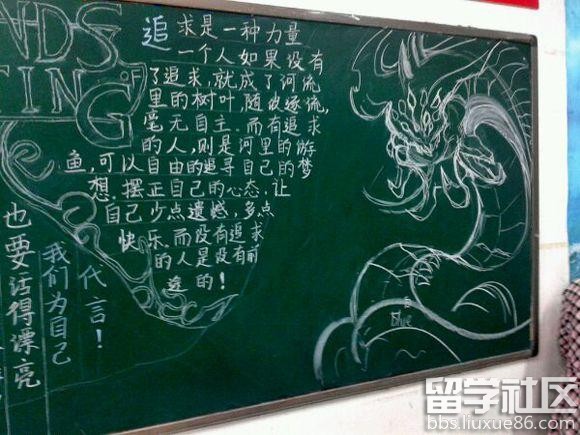 NDS
TING
OF
追求是一种力量
一个人如果没有
了追求,就成了河流
里的树叶,随波逐流,
毫无自主.而有追求
的人,则是河里的游
鱼,可以自由的追寻自己的梦
想.摆正自己的心态,让
自己少点遗憾,多点
快乐.而没有追求
的人是没有前
途的!
代言!
我们为自己
也要活得漂亮
Blue
留学社区
bbs.liuxue86.com